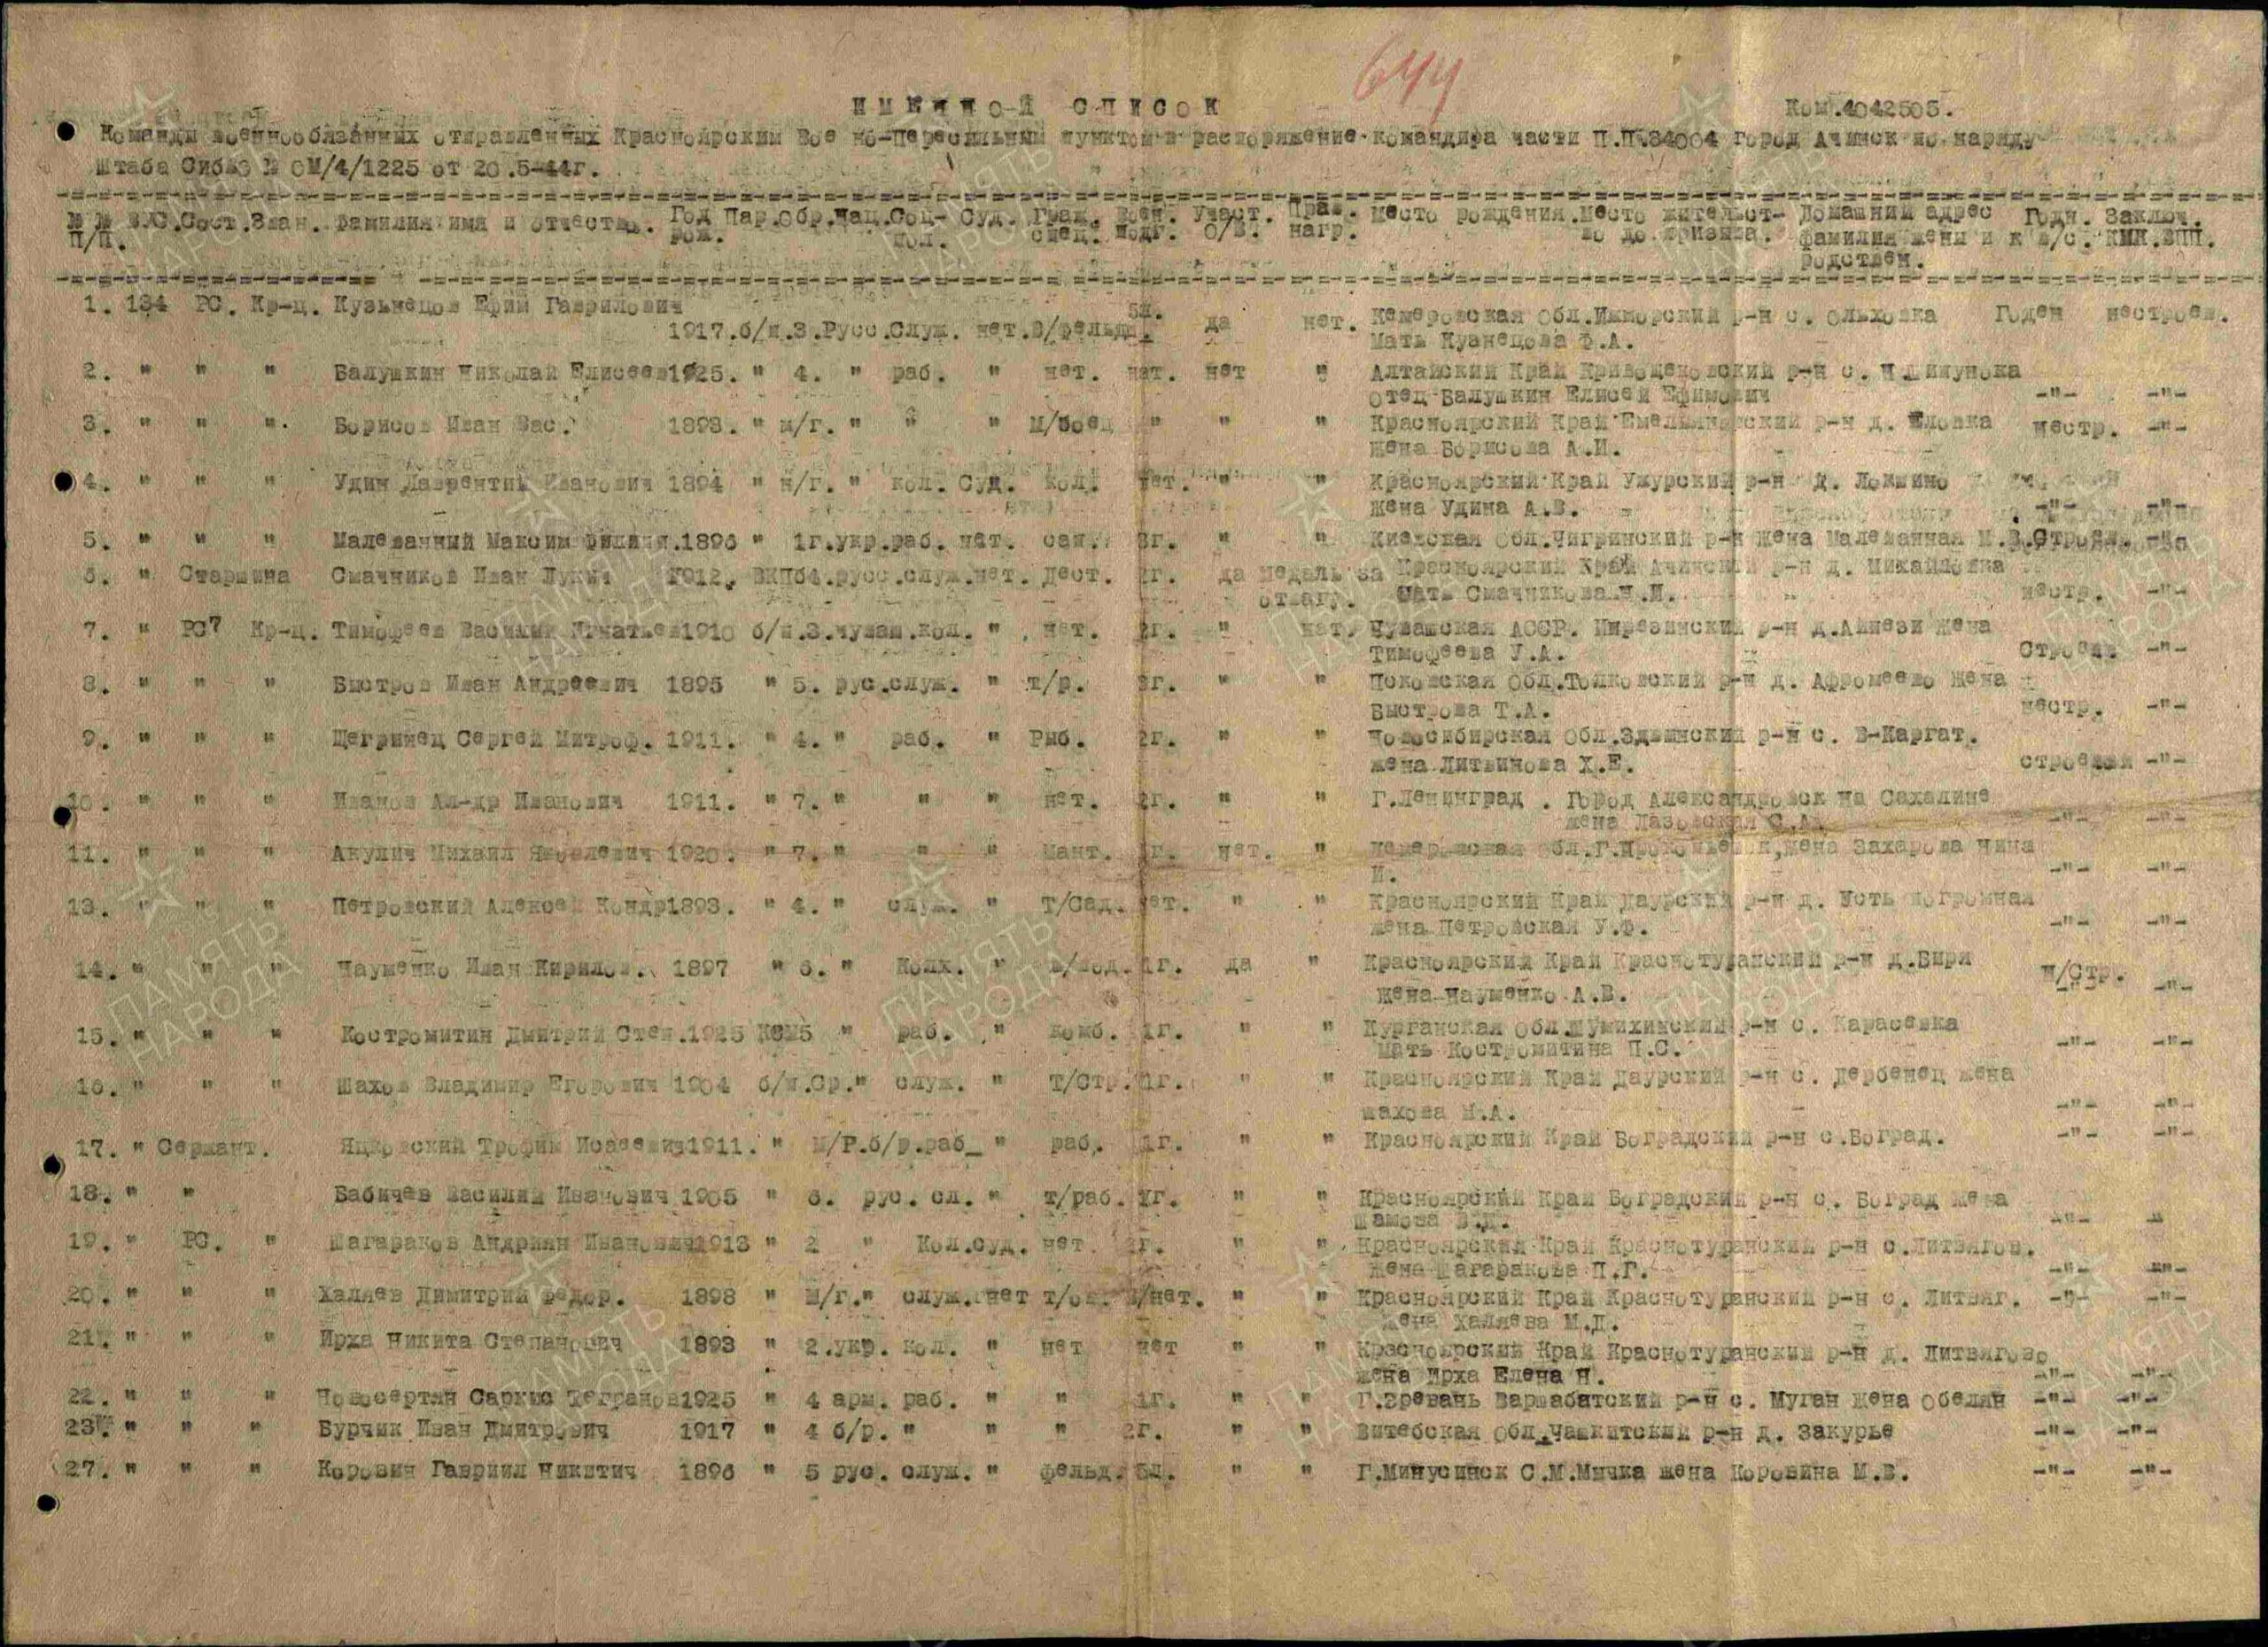 644
ИМЕННОЙ СПИСОК Ком.4042505.
Команды военнообязанных отправленных Красноярским Вое но-Пересыльным пунктом в распоряжение командира части П.П.34004 город Ачинск по наряду
Штаба Сибво № ОМ/4/1225 от 20.5-44г.
№ № ВУС.Сост.Зван. Фамилия имя и отчество. Год Пар.Обр.Нац.Соц- Суд. Граж. Воен. Участ. Прав. Место рождения.Место жительст- Домашний адрес Годн. Заключ.
П/П. рож. пол. спец. подг. О/В. нагр. во до призыва. фамилия жены и к в/с. КМК.ВПП.
родствен.
1. 134 РС. Кр-ц. Кузнецов Ефим Гаврилович 5л.
1917.б/п.3.Русс.Служ. нет.В/фельдш. да нет. Кемеровская обл.Ижморский р-н с. Ольховка Годен нестроев.
Мать Кузнецова Ф.А.
2. " " " Балушкин Николай Елисеев1925. " 4. " раб. " нет. нет. нет " Алтайский Край р-н с.
отец Балушкин Елисей Ефимович -"- -"-
3. " " " Борисов Иван Вас. 1893. " м/г. " " " М/боец " " " Красноярский Край Емельяновский р-н д. Еловка нестр. -"-
жена Борисова А.И.
4. " " " Удин Лаврентий Иванович 1894 " н/г. " кол. Суд. кол. нет. " " Красноярский Край Ужурский р-н д. Локшино
Жена Удина А.В. -"- -"-
5. " " " Малеванный Максим 1896 " 1г.укр.раб. нет. сап. 3г. " " Киевская обл.Чигринский р-н Жена Малеванная
6. " Старшина Смачников Иван Лукич 1912. ВКПб4.русс.служ.нет. Дест. 2г. да медаль за Красноярский Край Ачинский р-н д. Михайловка
отвагу. мать Смачникова Н.И. нестр. -"-
7. " РС7 Кр-ц. Тимофеев Василий Игнатьев1910 б/п.3.чуваш.кол. " нет. 2г. " нет. Чувашская АССР. р-н жена
Тимофеева У.А. Строев. -"-
8. " " " Быстров Иван Андреевич 1895 " 5. рус.служ. " т/р. 3г. " " Псковская обл. р-н д. жена
Быстрова Т.А. нестр. -"-
9. " " " Щегринец Сергей Митроф. 1911. " 4. " раб. " Рыб. 2г. " " Новосибирская обл.Здвинский р-н с. В-Каргат.
жена Литвинова Х.Е. строевой -"-
10. " " " Иванов Ал-др Иванович 1911. " 7. " " " нет. 2г. " " Г.Ленинград . Город Александровск на Сахалине
жена Лазовская С.А. -"- -"-
11. " " " Акулич Михаил Яковлевич 1920. " 7. " " " Мант. 1г. нет. " Кемеровская обл.Г.Прокопьевск,жена Захарова Нина
И. -"- -"-
13. " " " Петровский Алексей Кондр1893. " 4. " служ. " Т/Сад. нет. " " Красноярский Край Даурский р-н д. Усть Погромная
жена Петровская У.Ф. -"- -"-
14. " " " Науменко Иван Кирилов. 1897 " 6. " Колх. " 1г. да " Красноярский Край Краснотуранский р-н д.Биря н/стр.
жена Науменко А.В. -"- -"-
15. " " " Костромитин Дмитрий Степ.1925 КСМ5 " раб. " комб. 1г. " " Курганская обл.Шумихинский р-н с. Карасевка
мать Костромитина П.С. -"- -"-
16. " " " Шахов Владимир Егорович 1904 б/п.Ср." служ. " Т/Стр. 1г. " " Красноярский Край Даурский р-н с. Дербенец жена
Шахова М.А. -"- -"-
17. " Сержант. Яцковский Трофим Исаевич1911. " М/Г.б/р.раб_ " раб. 1г. " " Красноярский Край Боградский р-н с.Боград. -"- -"-
18. " " Бабичев Василий Иванович 1905 " 6. рус. сл. " т/раб. 1г. " " Красноярский Край Боградский р-н с. Боград жена
Шамова -"- "
19. " РС. " Шагараков Андриян Иванович1913 " 2 " Кол.суд. нет. 2г. " " Красноярский Край Краснотуранский р-н с.Литвягов.
жена Шагаракова П.Г. -"- -"-
20. " " " Халяев Димитрий Федор. 1898 " М/г." служ.нет н/нет. " " Красноярский Край Краснотуранский р-н с. Литвяг. -"- -"-
жена Халяева М.Д.
21. " " " Ирха Никита Степанович 1893 " 2.укр. кол. " нет нет " " Красноярский Край Краснотуранский р-н д. Литвягово
жена Ирха Елена Н. -"- -"-
22. " " " Новосертян Саркис Тегранов1925 " 4 арм. раб. " " 1г. " " Г.Эревань Варшабатский р-н с. Муган жена Обелян -"- -"-
23. " " " Бурчик Иван Дмитрович 1917 " 4 б/р. " " " 2г. " " Витебская обл.Чашкитский р-н д. Закурье -"- -"-
27. " " " Коровин Гавриил Никитич 1896 " 5 рус. служ. " фельд. 5л. " " Г.Минусинск С.М.Мичка жена Коровина М.В. -"- -"-
ПАМЯТЬ
НАРОДА